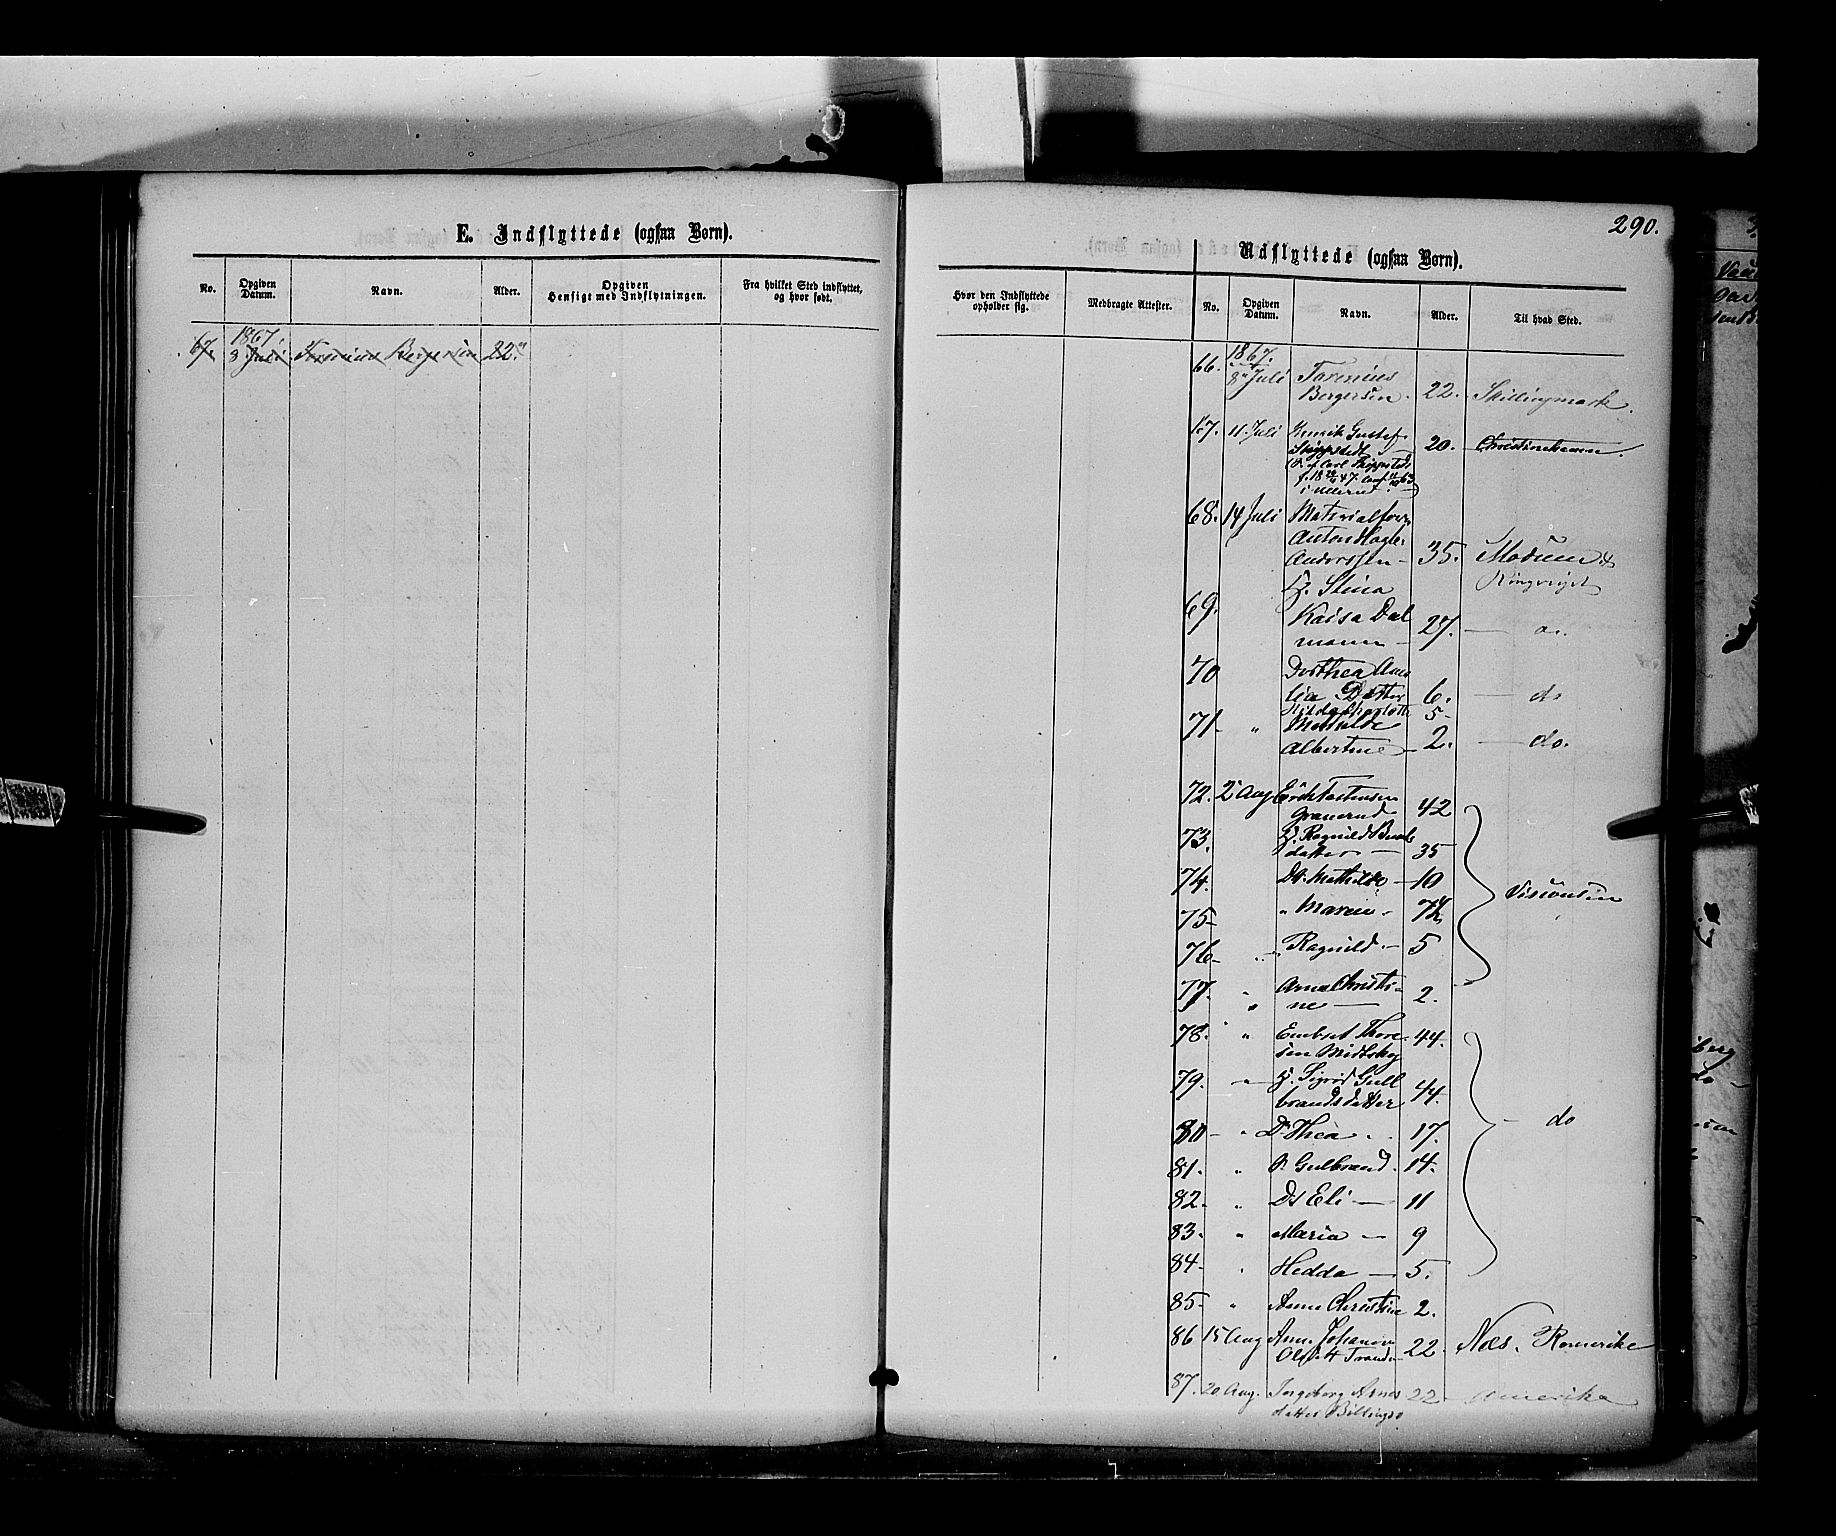 290.
E. Indflyttede (ogsaa Børn).
No. Opgiven Datum. Navn. Alder. Opgiven Hensigt med Indflytningen. Fra hvilket Sted indflyttet, og hvor født.
67. 1867. 8 Juli Torenius Bergersen 22.
Udflyttede (ogsaa Børn).
Hvor den Indflyttede opholder sig. Medbragte Attester. No. Opgiven Datum. Navn. Alder. Til hvad Sted.
1867.
66. 8 Juli Torenius
Bergersen. 22. Skillingmark.
67. 11. Juli Henrik Gustaf
20. Christinehamn.
68. 14 Juli Materialforv.
Anton
Anderssen 35. Modum
H. Stina
69. Kaisa Dal
mann 27.
70 Dorthea Ama
lia Datter 6. do
Hilda Charlotte 5
71 " Mathilde
Albertine 2. do.
72. 2 Aug Erik
Granerud 42
73. H. Ragnild
datter 35
74. Dt. Mathilde 10
75 " Maren
76 " Ragnild 5
77. " Anne Christi-
ne 2.
78. " Embret Thore-
sen Midtskog 44.
79. " H. Sigrid Gull
brandsdatter 44. do
80 " Dt. Thea 17.
81. " S. Gulbrand 14.
82. " Dt Eli 11
83. " Maria 9
84 " Hedda 5.
85. " Anne Christine 2.
86 15 Aug Ann. Johanne
22. Næs. Romerike
87. 20 Aug. Ingeborg Arnes 22 Amerika
datter